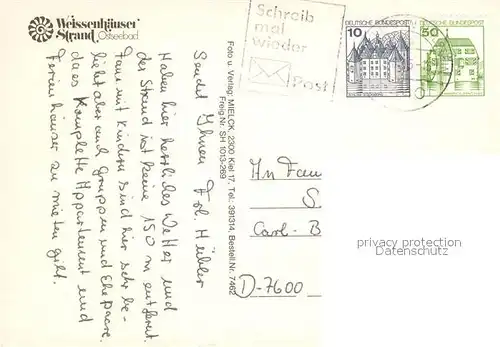 Weissenhäuser
Strand Ostseebad
Schreib
mal
wieder
Post
10
DEUTSCHE BUNDESPOST
50
DEUTSCHE BUNDESPOST
Haben hier herrliches Wetter und
der Strand ist keine 150 m entfernt.
Fam. mit Kindern sind hier sehr be-
liebt aber auch Gruppen und Ehepaare.
da es komplette Appartement und
Ferienhäuser zu mieten gibt.
Sendet Ihnen Frl. Hübler
Foto u. Verlag: MIELCK, 2300 Kiel 17, Tel.: 391314, Bestell.Nr. 7462
Freig.Nr. SH 1013-269
An Fam
S.
Carl-B
D-7600
privacy protection
Datenschutz